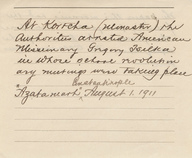 At Kortcha (Monastir) the
Authorities arrested American
Missionary Gregory Tsilka
in whose school revolution
ary meetings were taking place
Constantinople
"Azatamart", August 1. 1911